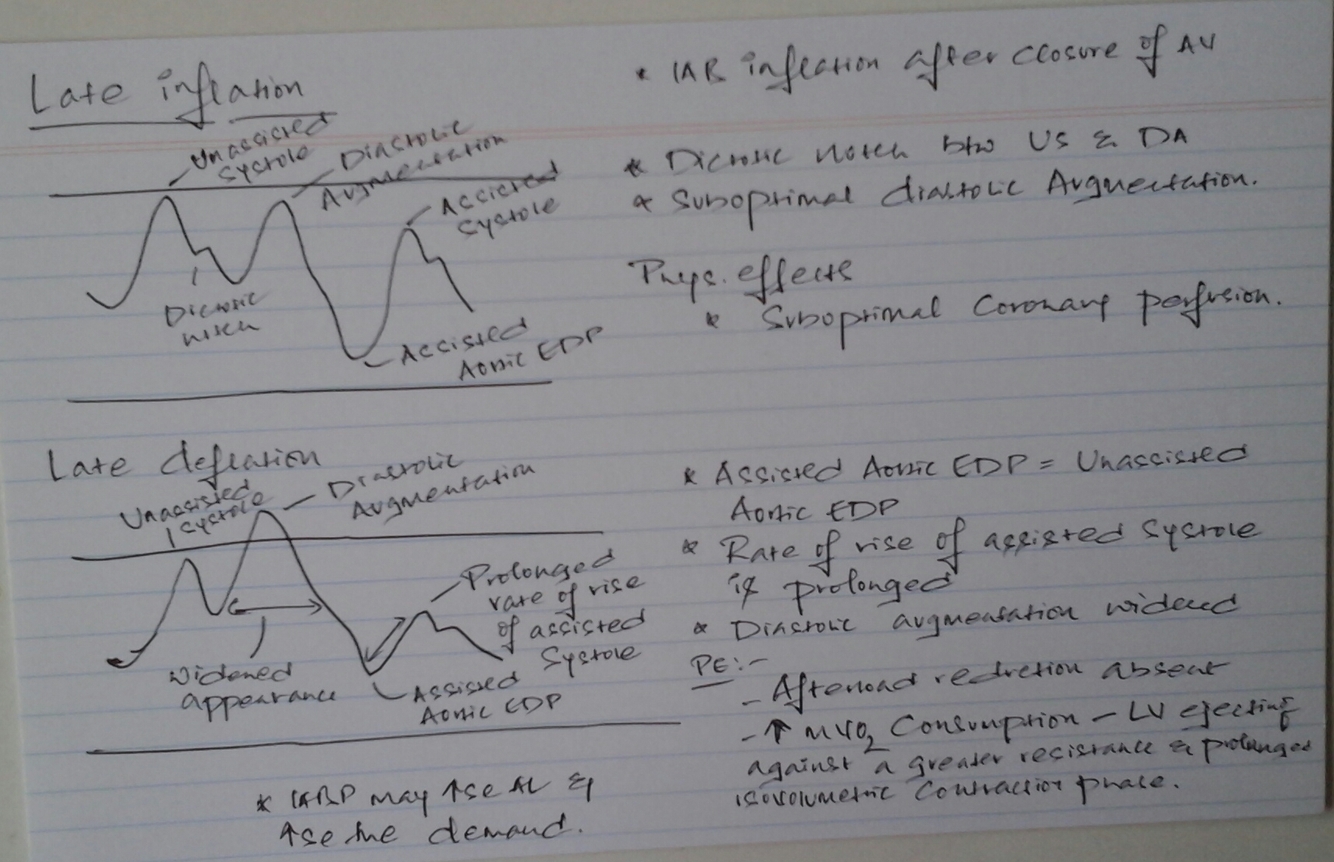 Late inflation
* IAB inflation after closure of AV
Unassisted
Systole
Diastolic
Augmentation
Assisted
Systole
Dicrotic
notch
Assisted
Aortic EDP
* Dicrotic notch btw US & DA
* Suboptimal diastolic Augmentation.
Phys. effects
* Suboptimal Coronary perfusion.
Late deflation
Unassisted
Systole
Diastolic
Augmentation
Prolonged
rate of rise
of assisted
Systole
Widened
appearance
Assisted
Aortic EDP
* IABP may ↑se AL &
↑se the demand.
* Assisted Aortic EDP = Unassisted
Aortic EDP
* Rate of rise of assisted Systole
is prolonged
* Diastolic augmentation widened
PE:-
- Afterload reduction absent
- ↑ MVO2 Consumption - LV ejecting
against a greater resistance & prolonged
isovolumetric Contraction phase.